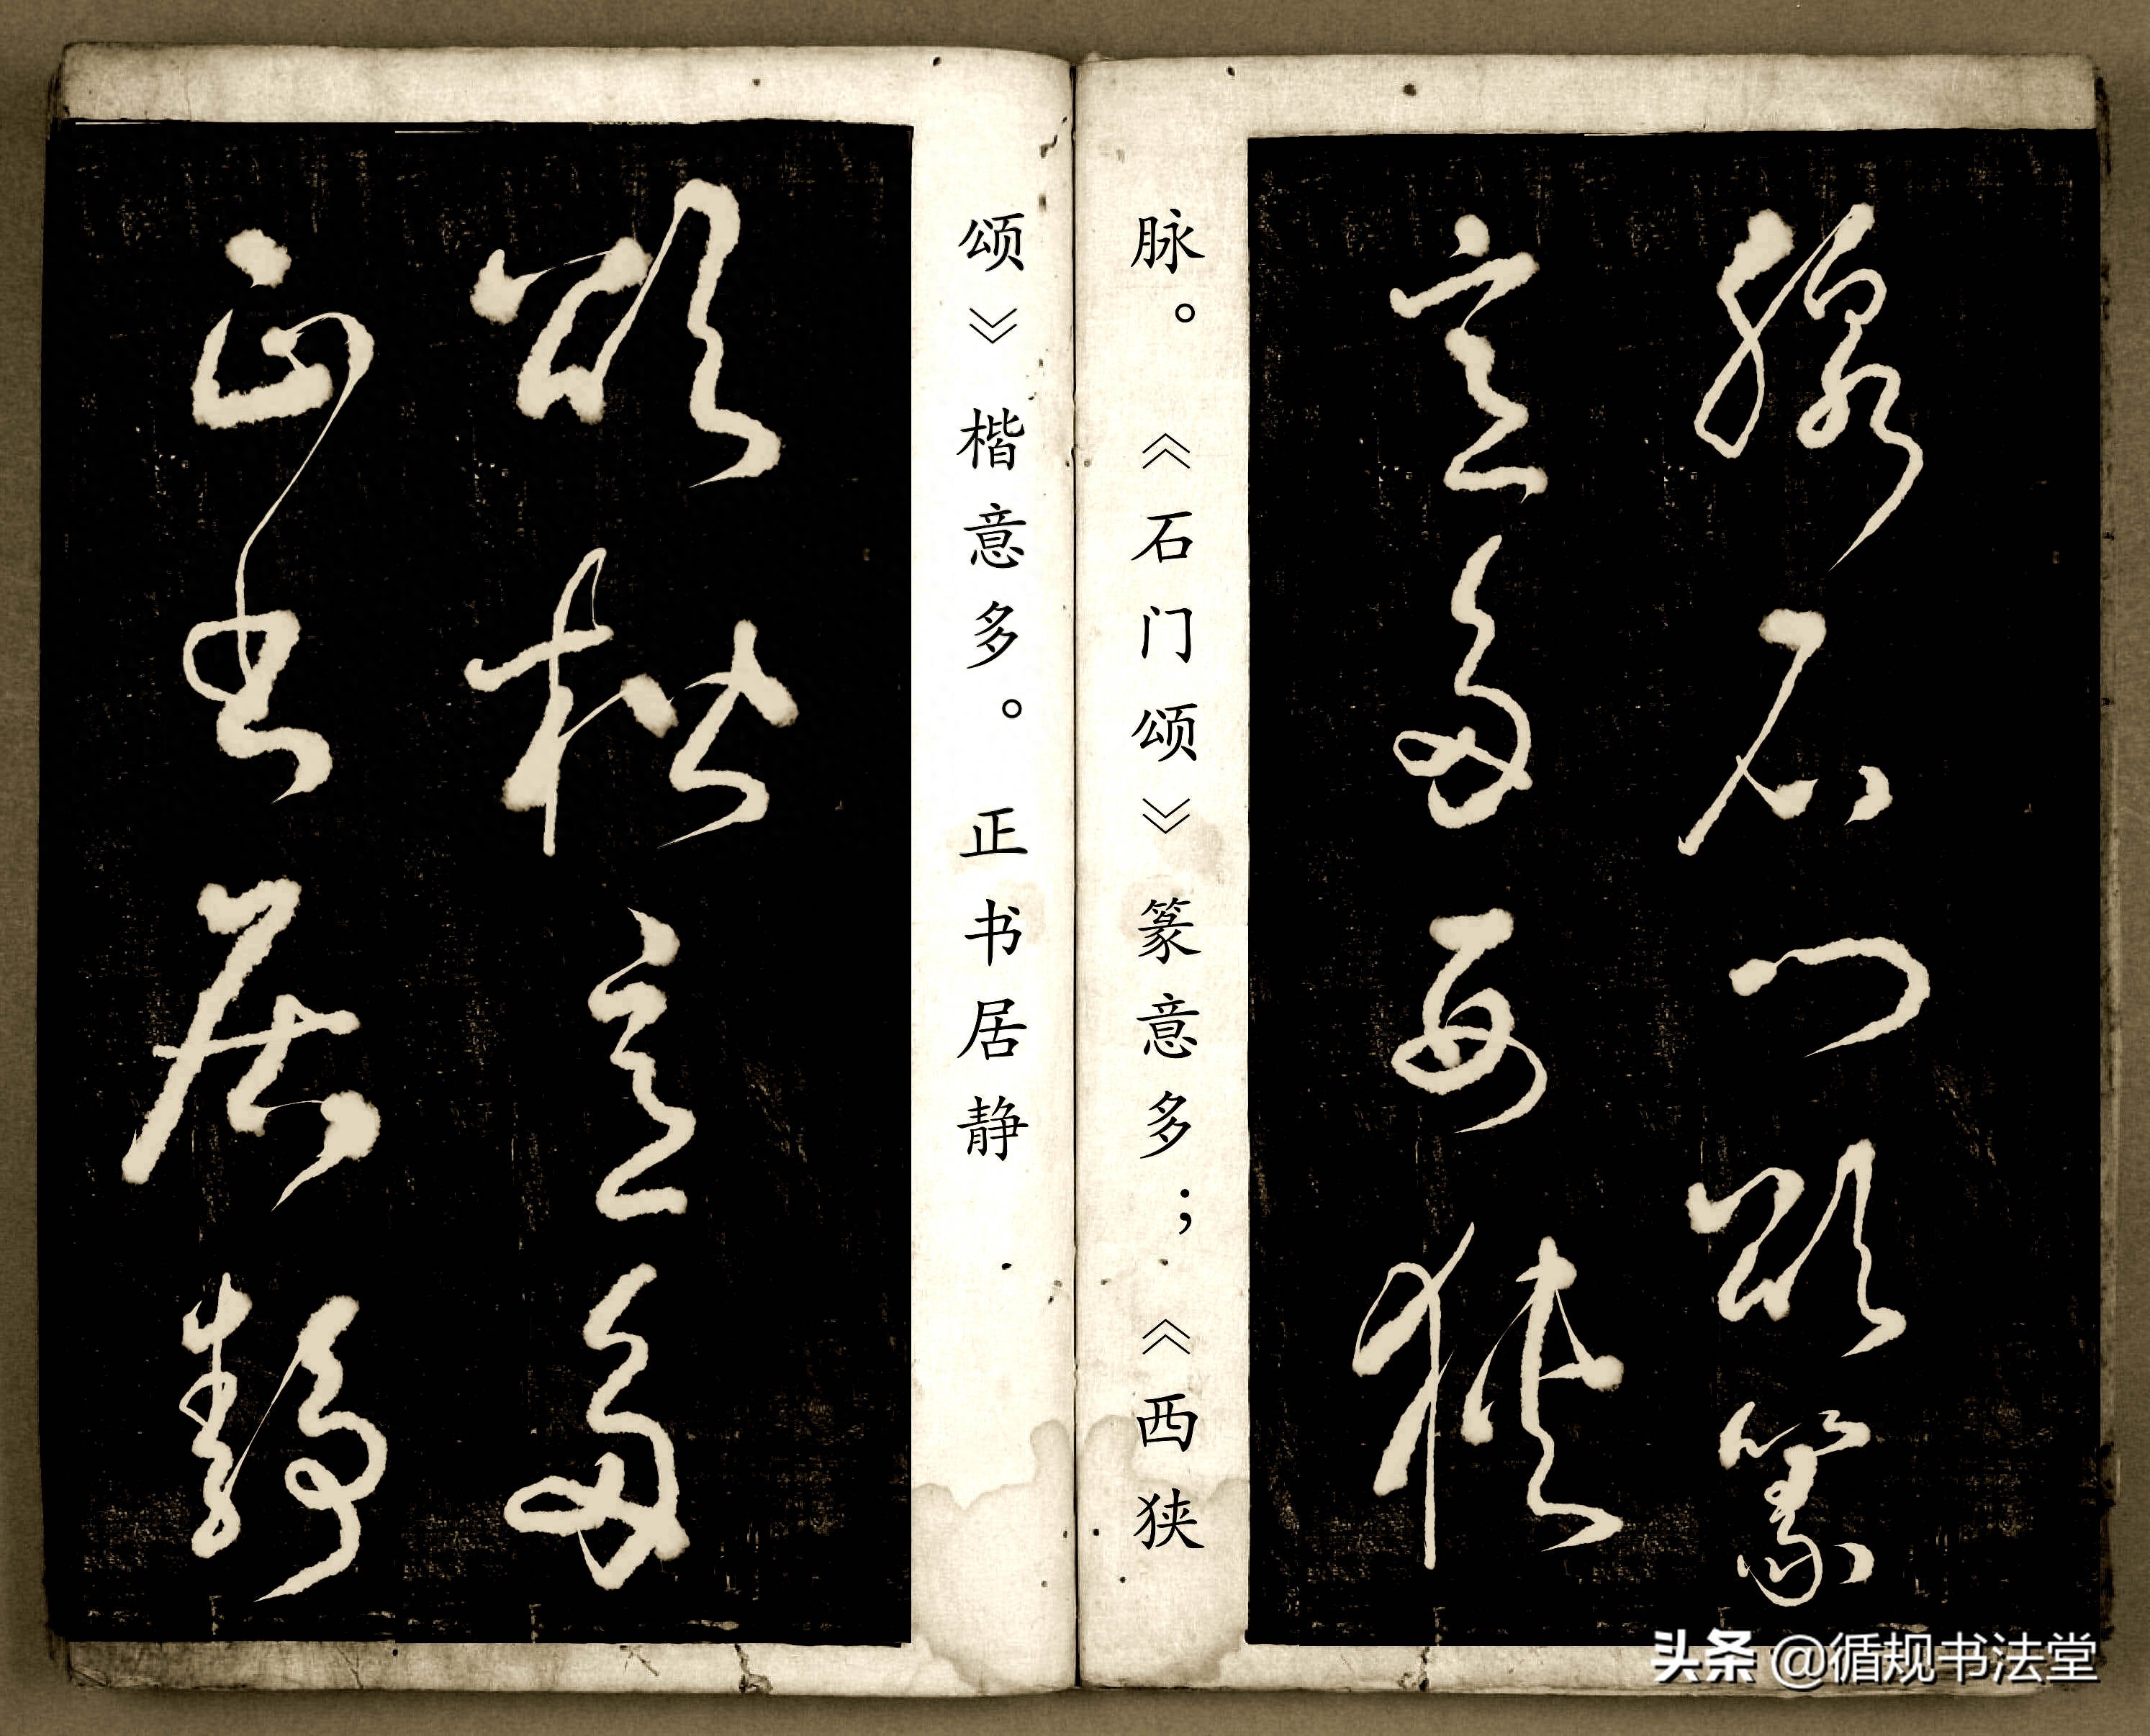 脉石门颂篆
意多西狭
脉。《石门颂》篆意多；《西狭
颂》楷意多。正书居静
颂楷意多
正书居静
头条 @循规书法堂